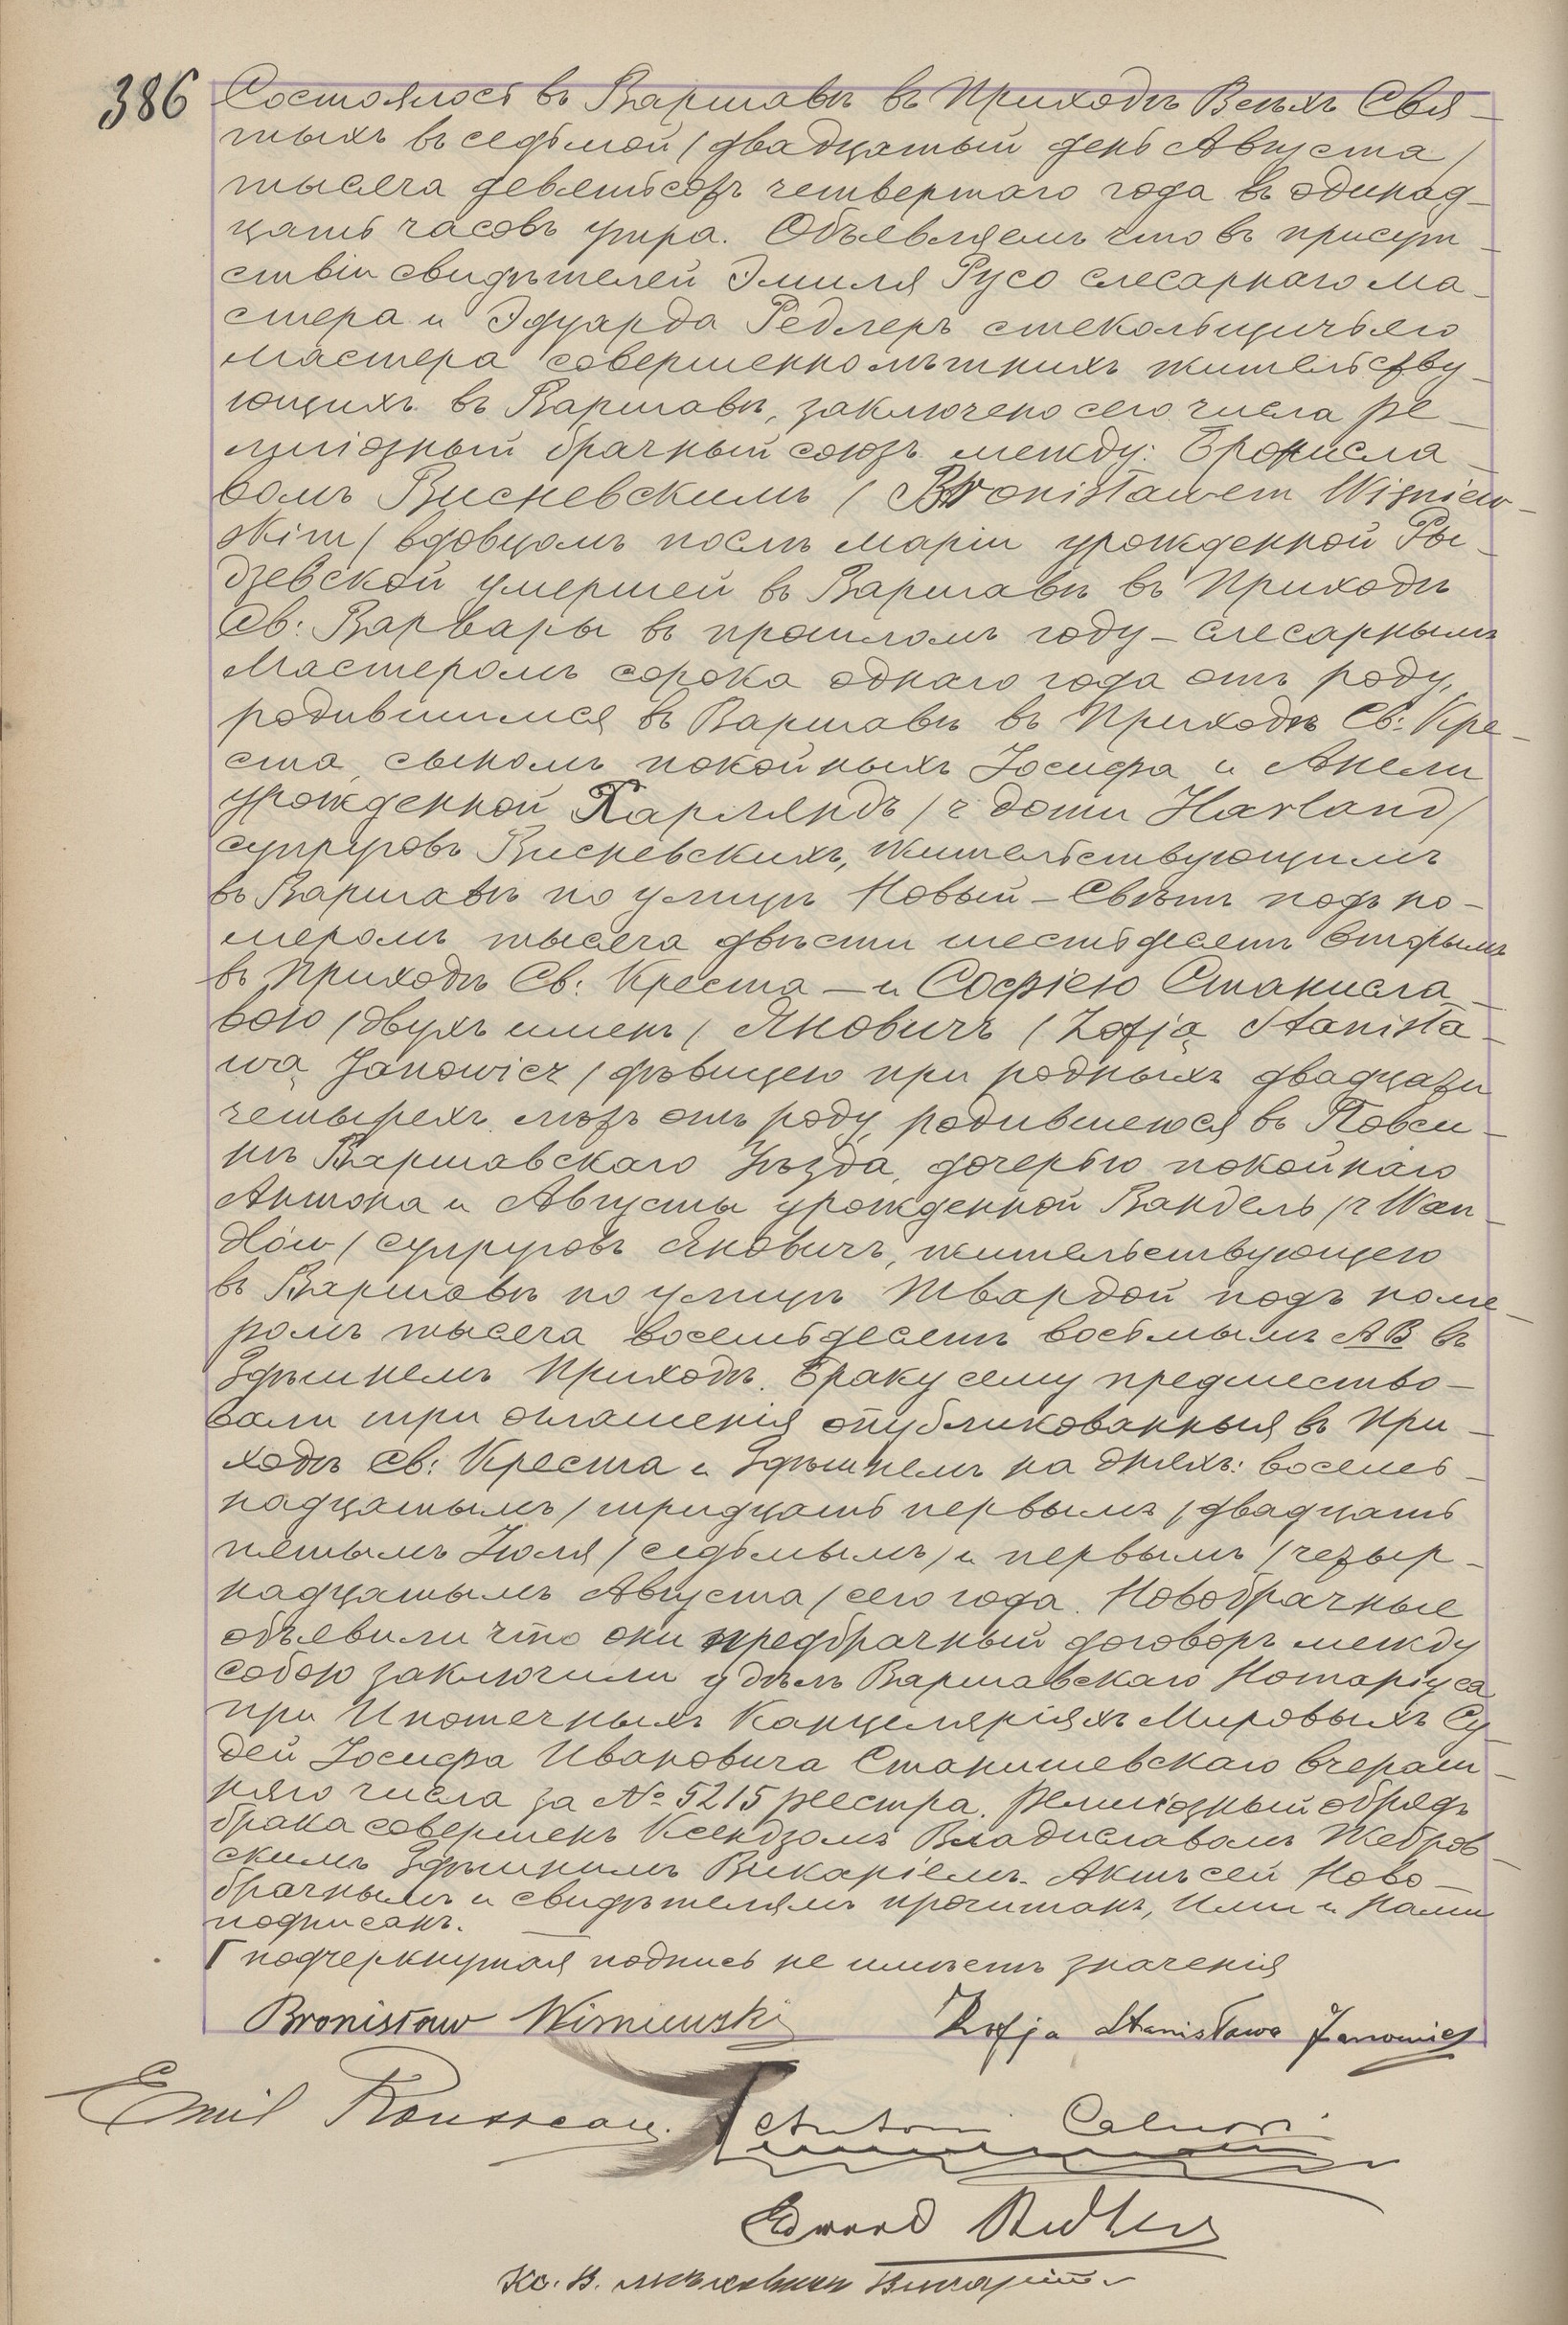 386
Состоялось въ Варшавѣ въ Приходѣ Всѣхъ Свя-
тыхъ въ седьмой / двадцатый день Августа /
тысяча девятьсотъ четвертаго года въ одинад-
цать часовъ утра. Объявляемъ что въ присут-
ствіи свидѣтелей Эмиля Русо слесарнаго ма-
стера и Эдуарда Редлеръ стекольщичьяго
мастера совершеннолѣтнихъ жительству-
ющихъ въ Варшавѣ, заключено сего числа ре-
лигіозный брачный союзъ между: Брониcла-
вомъ Висневскимъ / Bronisławem Wiśniew-
skim / вдовцомъ послѣ Маріи урожденной Ры-
дзевской умершей въ Варшавѣ въ Приходѣ
Св: Варвары въ прошломъ году – слесарнымъ
мастеромъ сорока однаго года отъ роду,
родившимся въ Варшавѣ въ Приходѣ Св: Кре-
ста, сыномъ покойныхъ Іосифа и Анели
урожденной Харляндъ / z domu Harland /
супруговъ Висневскихъ, жительствующимъ
въ Варшавѣ по улицѣ Новый – Свѣтъ подъ но-
меромъ тысяча двѣсти шестьдесятъ вторымъ
въ Приходѣ Св: Креста – и Софіею Станисла-
вою / двухъ именъ / Яновичъ / Zofją Stanisła-
wą Janowicz / дѣвицею при родныхъ двадцати
четырехъ лѣтъ отъ роду, родившеюся въ Повси-
нѣ Варшавскаго Уѣзда, дочерью покойнаго
Антона и Августы урожденной Вандель / z Wan-
dlów / супруговъ Яновичъ, жительствующею
въ Варшавѣ по улицѣ Твардой подъ номе-
ромъ тысяча восемьдесятъ восьмымъ АВ въ
Здѣшнемъ Приходѣ. Браку сему предшество-
вали три оглашенія опубликованныя въ При-
ходѣ Св: Креста и Здѣшнемъ на дняхъ: восемь-
надцатымъ / тридцать первымъ / двадцать
пятымъ Іюля / седьмымъ / и первымъ / четыр-
надцатымъ Августа / сего года. Новобрачные
объявили что они предбрачный договоръ между
собою заключили у дѣлъ Варшавскаго Нотаріуса
при Ипотечныхъ Канцеляріяхъ Мировыхъ Су-
дей Іосифа Ивановича Станишевскаго вчераш-
няго числа за № 5215 реестра. Религіозный обрядъ
брака совершенъ Ксендзомъ Владиславомъ Жебров-
скимъ Здѣшнимъ Викаріемъ. Актъ сей Ново-
брачнымъ и свидѣтелямъ прочитанъ, Ими и Нами
подписанъ.
Г подчеркнутая подпись не имѣетъ значенія
Bronisław Wisniewski Zofja Stanisława Janowicz
Emil Rousseau.
Antoni
Edward Redler
Кс. В.